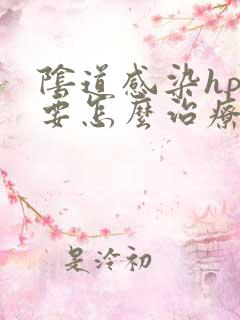 陰道感染hp
要怎麼治療
是泠初